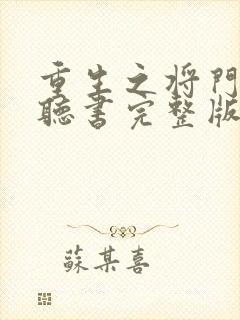 重生之将门
聽書完整版
蘇某喜